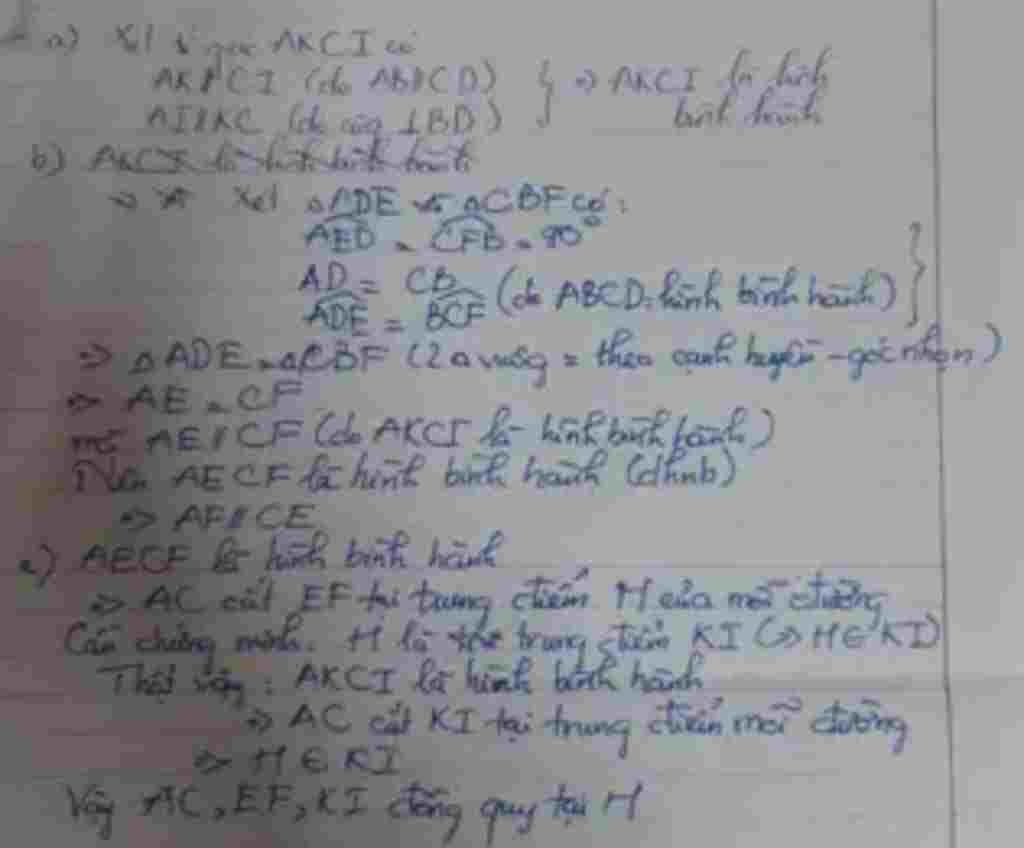 a) Xét tứ giác AKCI có
AK//CI (do AB//CD) } => AKCI là hình
AI//KC (do cùng ⊥BD) bình hành
b) AKCI là hình bình hành
=> Xét △ADE và △CBF có:
AED = CFB = 90°
AD = CB (do ABCD: hình bình hành)
ADE = BCF
=> △ADE = △CBF (2△ vuông = theo cạnh huyền - góc nhọn)
=> AE = CF
mà AE//CF (do AKCI là hình bình hành)
Nên AECF là hình bình hành (dhnb)
=> AF//CE
c) AECF là hình bình hành
=> AC cắt EF tại trung điểm H của mỗi đường
Cần chứng minh: H là trung điểm KI (=> H ∈ KI)
Thật vậy: AKCI là hình bình hành
=> AC cắt KI tại trung điểm mỗi đường
=> H ∈ KI
Vậy AC, EF, KI đồng quy tại H